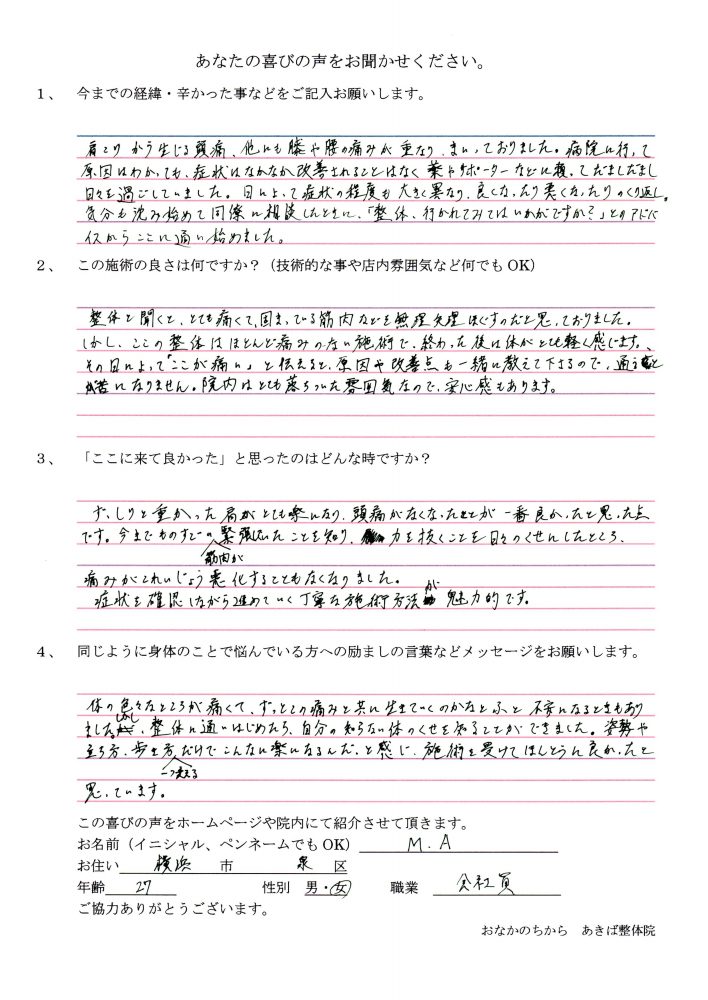 あなたの喜びの声をお聞かせください。
１、 今までの経緯・辛かった事などをご記入お願いします。
肩こりから生じる頭痛、他にも膝や腰の痛みが重なり、まいっておりました。病院に行って
原因はわかっても、症状はなかなか改善されることはなく薬やサポーターなどに頼ってだましだまし
日々を過ごしていました。日によって症状の程度も大きく異なり、良くなったり悪くなったりのくり返し。
気分も沈み始めて関係に相談したときに、「整体、行かれてみてはいかがですか？」とのアドバ
イスからここに通い始めました。
２、 この施術の良さは何ですか？（技術的な事や店内雰囲気など何でも OK）
整体と聞くと、とても痛くて、固まっている筋肉などを無理矢理ほぐすのだと思っておりました。
しかし、ここの整体はほとんど痛みのない施術で、終わった後は体がとても軽く感じます。
その日によって「ここが痛い」と伝えると、原因や改善点も一緒に教えて下さるので、通うこと
が苦になりません。院内はとても落ちついた雰囲気なので、安心感もあります。
３、 「ここに来て良かった」と思ったのはどんな時ですか？
ずっしりと重かった肩がとても楽になり、頭痛がなくなったことが一番良かったと思った点
です。今までものすごく筋肉が緊張していたことを知り、力を抜くことを日々のくせにしたところ、
痛みがこれいじょう悪化することもなくなりました。
症状を確認しながら進めていく丁寧な施術方法が魅力的です。
４、 同じように身体のことで悩んでいる方への励ましの言葉などメッセージをお願いします。
体の色々なところが痛くて、ずっとこの痛みと共に生きていくのかなとふと不安になるときもあり
ました。しかし、整体に通いはじめたら、自分の知らない体のくせを知ることができました。姿勢や
立ち方、歩き方一つ変えるだけでこんなに楽になるんだ、と感じ、施術を受けてほんとうに良かったと
思っています。
この喜びの声をホームページや院内にて紹介させて頂きます。
お名前（イニシャル、ペンネームでも OK） M.A
お住い 横浜 市 泉 区
年齢 27 性別 男・女 職業 会社員
ご協力ありがとうございます。
おなかのちから あきば整体院